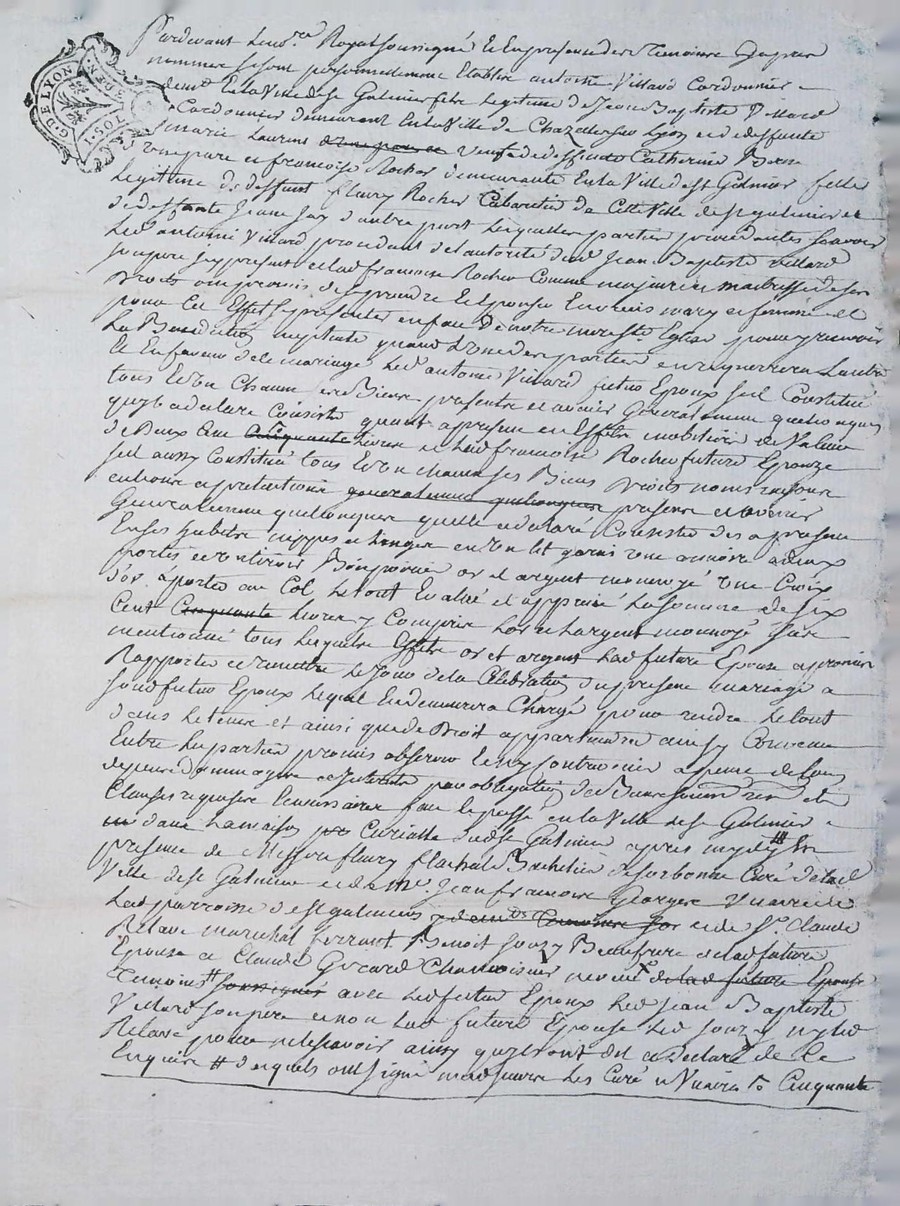 G. DE LYON
1 SOL
Pardevant le no.re Royal soussigné et en presence des temoins cy apres
nommes se sont personnellement etablis antoine Villard Cordonnier
dem.t en la Ville de St Galmier fils legitime de Jean Baptiste Villard
Cordonnier demeurant en la Ville de Chazelles sur Lyon et de deffunte
marie Laurens veufve de deffunte Catherine
d'une part et francoise Rocher demeurante en la Ville de St Galmier fille
Legitime de deffunt fleury Rocher Cabaretier de cette Ville de St galmier et
de deffunte Jeanne Jay d'autre part lesquelles parties procedantes scavoir
led. antoine Villard procedant de l'autorité dud. Jean Baptiste Villard
son pere icy present et lad. francoise Rocher comme majeure maitresse de ses
Droits ont promis de se prendre et Epouser en vrais mary et femme et
pour cet Effet se presenter en face de notre mere Ste Eglise pour y recevoir
la Benediction nuptiale quand L'une des parties en requerrera L'autre
Et en faveur de ce mariage led. antoine Villard futur Epoux s'est Constitué
tous et un Chacun ses Biens presents et avenir Generalement quelconques
qu'il a declaré Consister quant a present en Effets mobiliers de Valeur
de Deux Cent livres et lad. francoise Rocher future Epouze
s'est aussy Constitué tous et un chacun ses Biens Droits noms raisons
actions et pretentions generalement quelconques presents et avenir
Generalement quelconques quelle a declaré Consister des a present
en ses habits nippes et linges en un lit garni une armoire a deux
portes et un tiroir Bois or et argent monnoyé une Croix
d'or a porter au Col le tout Evalué et apprecié la somme de six
Cent Cinquante livres y Compris lor et largent monnoyé
mentionné tous lesquels Effets or et argent lad. future Epouse a promis
Rapporter et remettre le jour de la Célébration du present mariage a
sond. futur Epoux lequel en demeurera Chargé pour rendre le tout
dans le tems et ainsi que de Droit appartiendra ainsy Convenu
Entre les parties promis observer a peine de tous
depens dommages et interets par obligation de Biens
Clauses requises necessaires fait et passé en la Ville de St Galmier
dans la maison Curialle dud. St Galmier apres midy
presence de Messire fleury flachat Bachelier de sorbonne Curé de lad.
Ville de St Galmier et de Me. Jean francois George Vicaire de
lad. parroisse de St galmier et de Sr. Claude
Relave marechal ferrant Benoit Jouzy Beaufrere de lad. future
Epouse et Claude Girard de lad. future Epouse
temoins soussignés avec led. futur Epoux led. Jean Baptiste
Villard son pere et non lad. future Epouse led. Jouzy ny led.
Relave pour ne scavoir ainsy qu'ils ont dit et declaré de ce
Enquis # desquels ont signé Les Curé Vicaire Cinquante